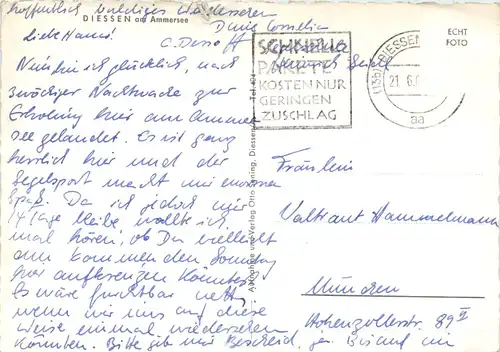 hoffentlich baldiges Wiedersehen
DIESSEN am Ammersee
Deine Cornelia
Liebe Hanni!
Nun bin ich glücklich, nach
zwötiger Nachtwache zur
Erholung hier am Ammer-
see gelandet. Es ist ganz
herrlich hier und der
Segelsport macht mir enormen
Spaß. Da ich jedoch nur
14 Tage bleibe wollt ich
mal hören, ob Du vielleicht
am kommenden Sonntag
hier aufkreuzen könntest.
Es wäre furchtbar nett,
wenn wir uns auf diese
Weise einmal wiedersehen
könnten. Bitte gib mir Bescheid,
Bis auf ein
SCHNELL
PAKETE
KOSTEN NUR
GERINGEN
ZUSCHLAG
DIESSEN
21. 6.
aa
ECHT
FOTO
Aufnahme und Verlag Otto
Diessen
Tel.
Fräulein
Valtraut Hammelmann
München
Hohenzollernstr. 89 II